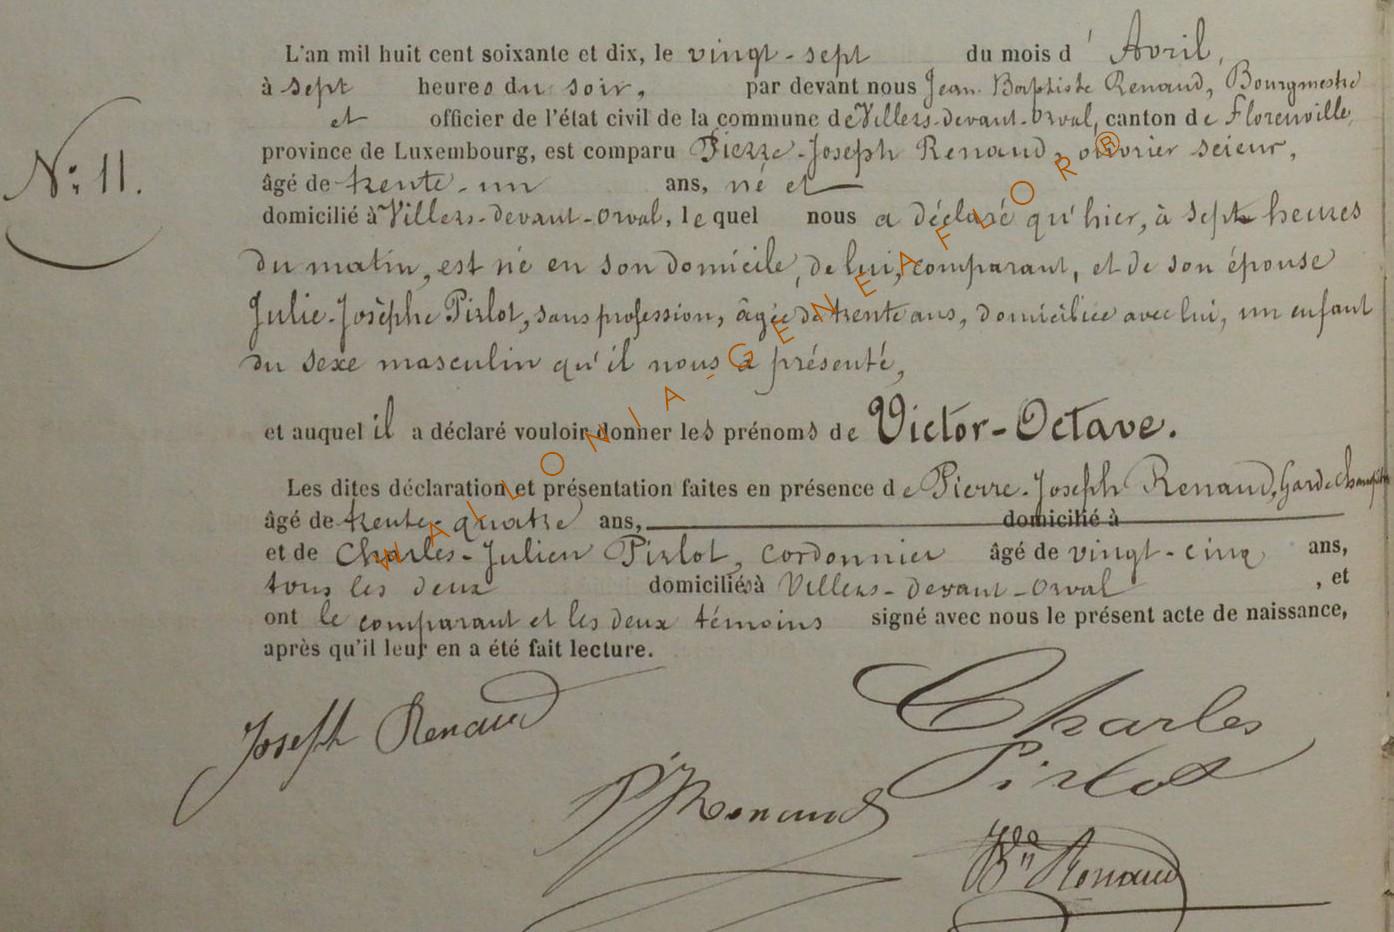 L'an mil huit cent soixante et dix, le vingt-sept du mois d'Avril,
à sept heures du soir, par devant nous Jean Baptiste Renaud, Bourgmestre
et officier de l'état civil de la commune de Villers-devant-Orval, canton de Florenville,
province de Luxembourg, est comparu Pierre-Joseph Renaud, ouvrier scieur,
N: 11.
âgé de trente-un ans, né et
domicilié à Villers-devant-Orval, lequel nous a déclaré qu'hier, à sept heures
du matin, est né en son domicile, de lui, comparant, et de son épouse
Julie-Josèphe Pirlot, sans profession, âgée de trente ans, domiciliée avec lui, un enfant
du sexe masculin qu'il nous a présenté,
et auquel il a déclaré vouloir donner les prénoms de Victor-Octave.
Les dites déclaration et présentation faites en présence de Pierre-Joseph Renaud, Garde champêtre
âgé de trente-quatre ans, domicilié à
et de Charles-Julien Pirlot, cordonnier âgé de vingt-cinq ans,
tous les deux domiciliés à Villers-devant-Orval, et
ont le comparant et les deux témoins signé avec nous le présent acte de naissance,
après qu'il leur en a été fait lecture.
Joseph Renaud
Charles
Pirlot
PJ Renaud
Bn Renaud
WALLONIA-GENEAFLOR®